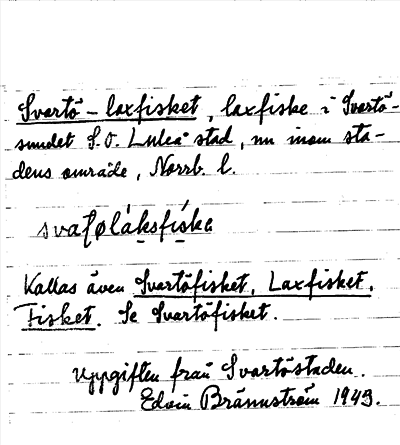 Svartö-laxfisket, laxfiske i Svartö-
sundet S.O. Luleå stad, nu inom sta-
dens område, Norrb. l.
svaʈøláksfíske
Kallas även Svartöfisket, Laxfisket,
Fisket. Se Svartöfisket.
Uppgiften från Svartöstaden.
Edvin Brännström 1943.